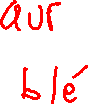 aur
blé